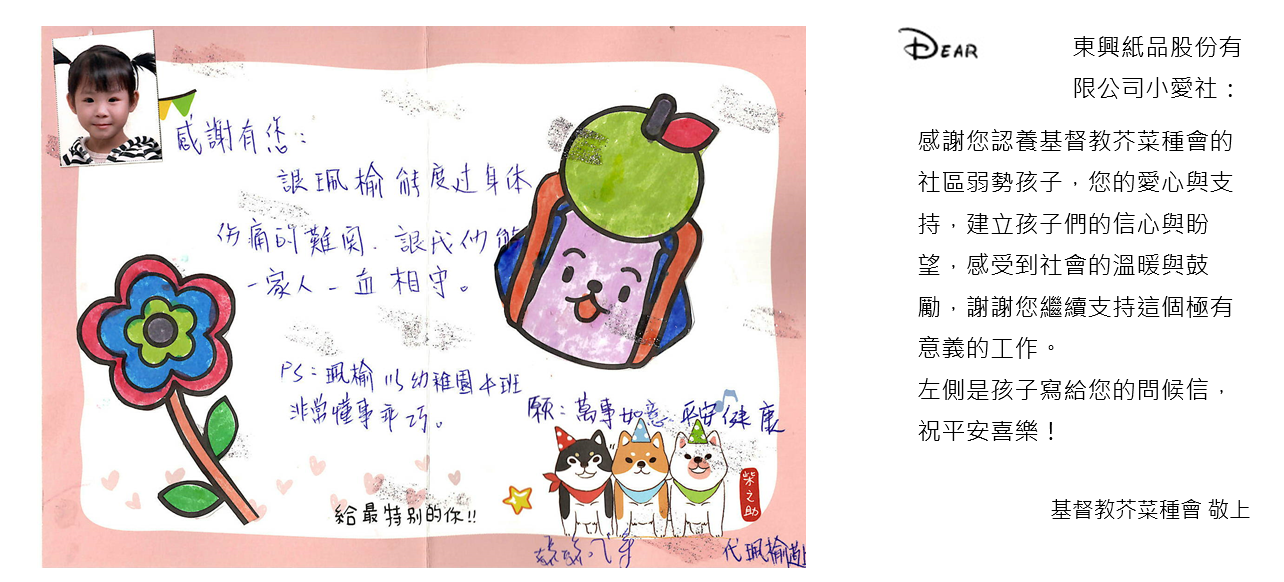 感謝有您：
讓珮榆能度过身体
伤痛的難関．讓我们能
一家人一直相守。
PS：珮榆 小幼稚園中班
非常懂事乖巧。
願：萬事如意 平安健康
給最特別的你!!
柴之助
代珮榆
DEAR
東興紙品股份有
限公司小愛社：
感謝您認養基督教芥菜種會的
社區弱勢孩子，您的愛心與支
持，建立孩子們的信心與盼
望，感受到社會的溫暖與鼓
勵，謝謝您繼續支持這個極有
意義的工作。
左側是孩子寫給您的問候信，
祝平安喜樂！
基督教芥菜種會 敬上